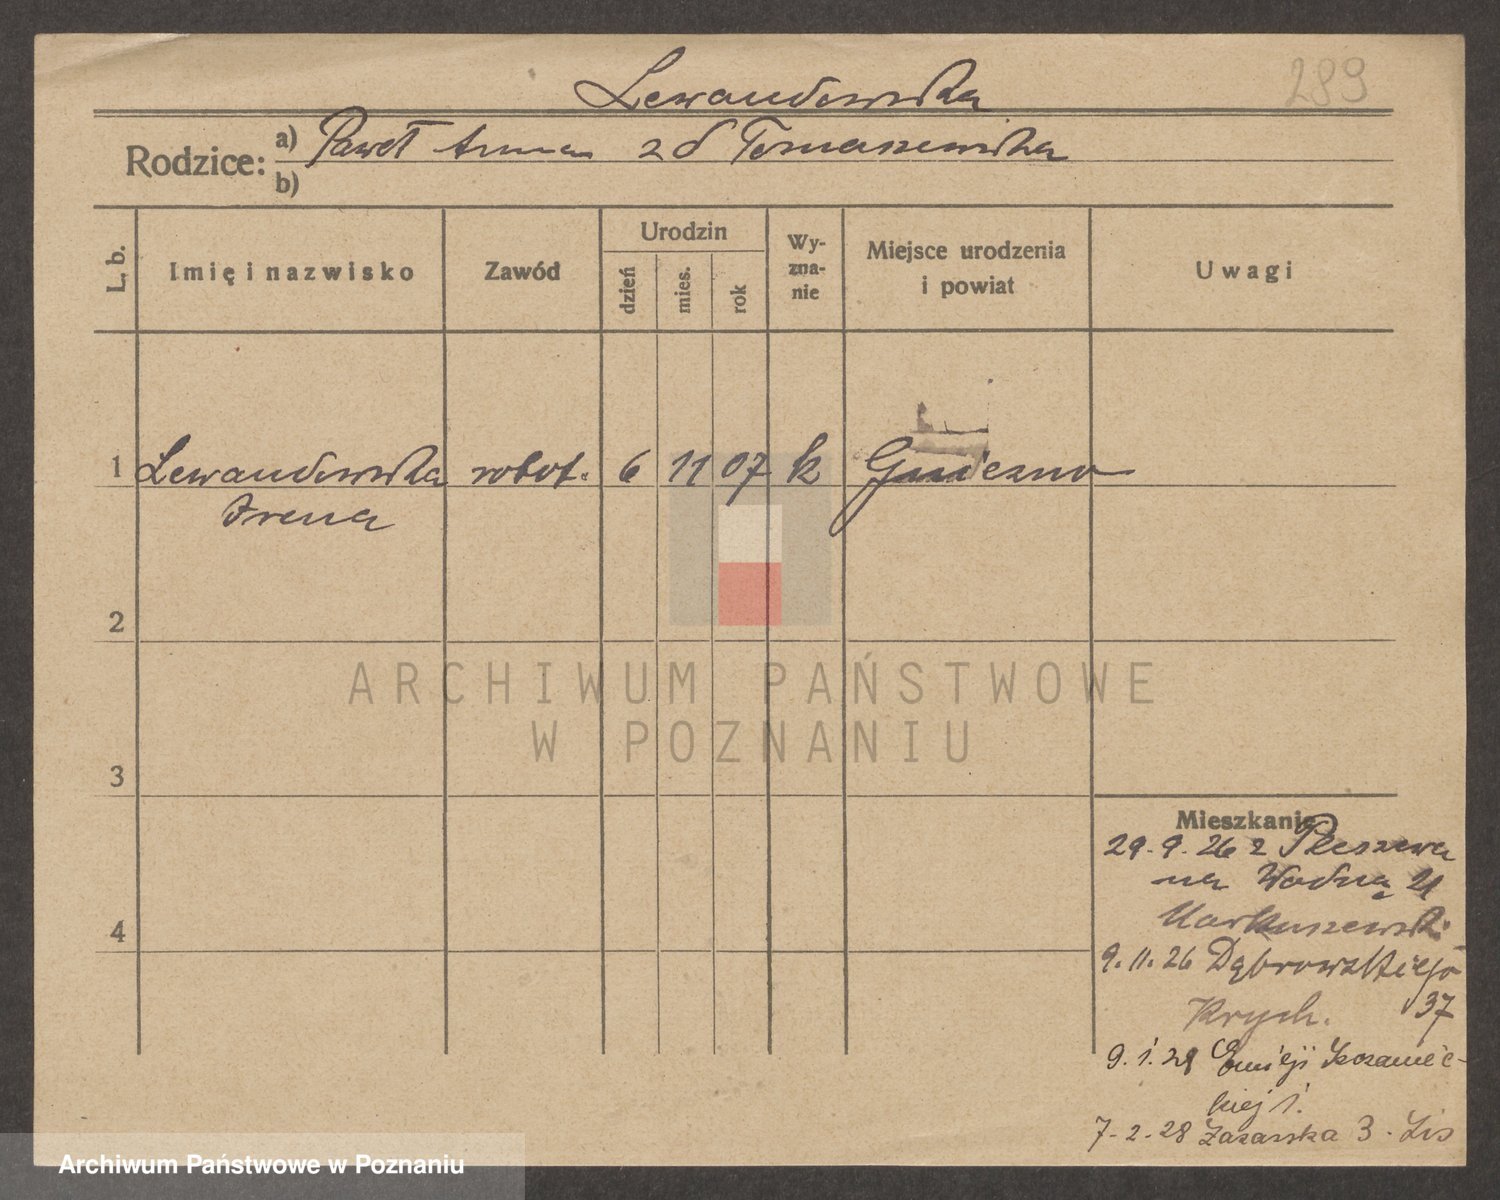 289
Lewandowska
Rodzice: a) Paweł Anna z d Tomaszewska
b)
L. b.
Imię i nazwisko
Zawód
Urodzin
dzień
mies.
rok
Wy-
zna-
nie
Miejsce urodzenia
i powiat
Uwagi
1 Lewandowska robot. 6 11 07 k Gniezno
Irena
2
3
4
Mieszkanie
29. 9. 26 z Pleszewa
na Wodną 21
Markuszewski
9. 11. 26 Dąbrowskiego
37
Krych.
9. 1. 28 Emilji Sczaniec-
kiej 1.
7-2-28 Łazarska 3. Lis
ARCHIWUM PAŃSTWOWE
W POZNANIU
Archiwum Państwowe w Poznaniu